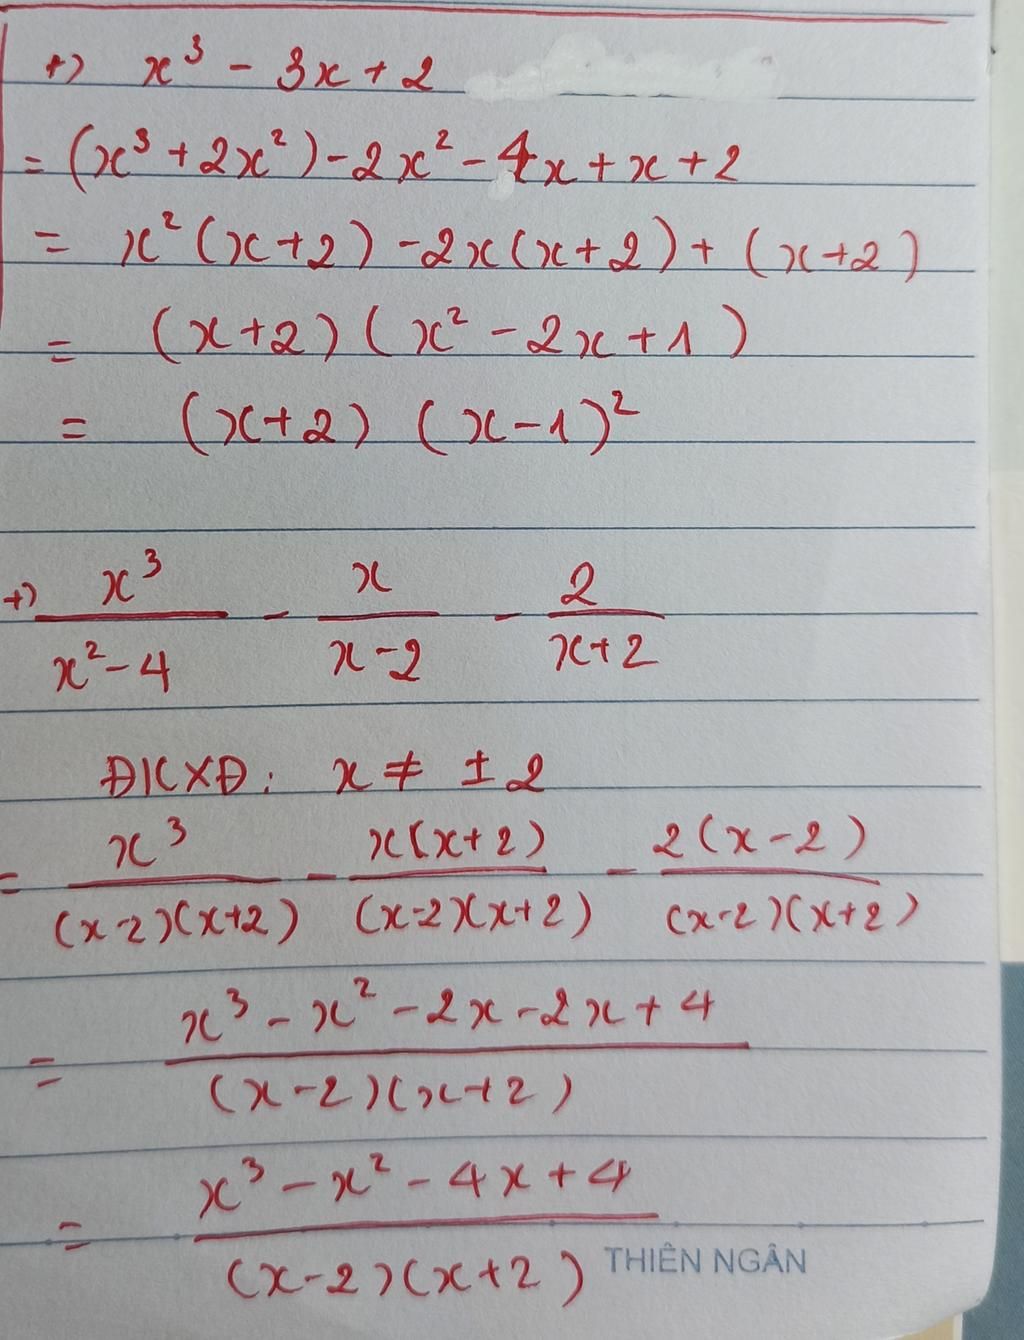 +) x³ - 3x + 2
= (x³ + 2x²) - 2x² - 4x + x + 2
= x² (x+2) - 2x(x+2) + (x+2)
= (x+2) (x² - 2x + 1)
= (x+2) (x-1)²
+) x³/(x²-4) - x/(x-2) - 2/(x+2)
ĐKXĐ: x ≠ ± 2
= x³/((x-2)(x+2)) - x(x+2)/((x-2)(x+2)) - 2(x-2)/((x-2)(x+2))
= (x³ - x² - 2x - 2x + 4)/((x-2)(x+2))
= (x³ - x² - 4x + 4)/((x-2)(x+2))
THIÊN NGÂN